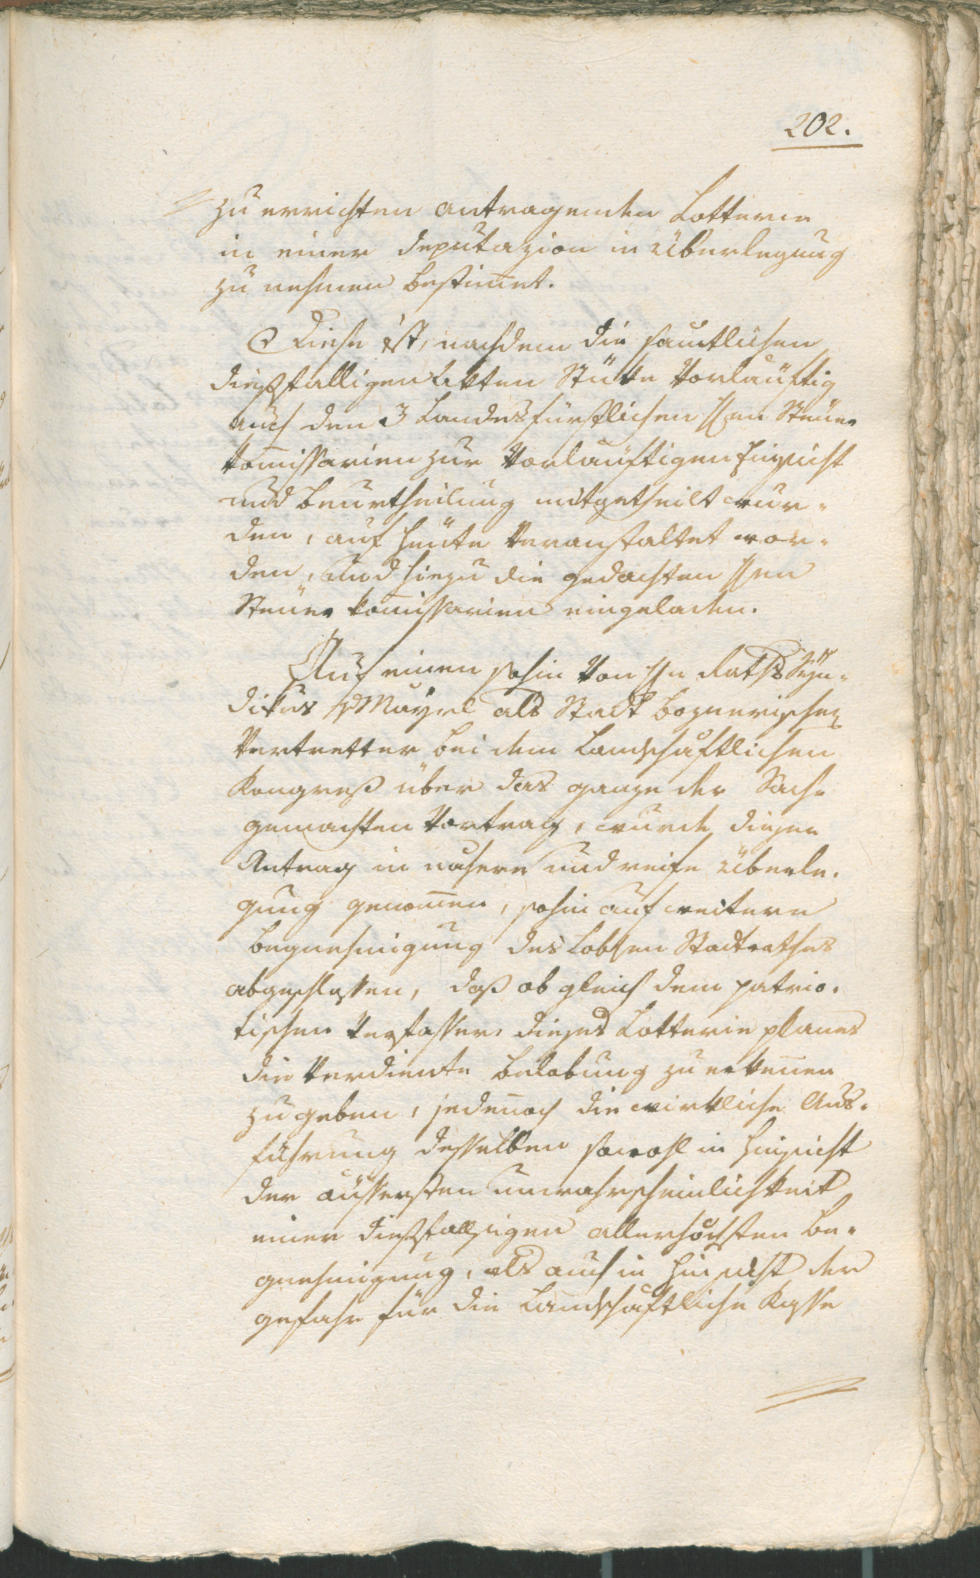 202.
zu errichten antragenden Lotterie
in einer Deputazion in Überlegung
zu nehmen bestimet.
Diese ist, nachdem die samtlichen
dießfalligen Akten Stüke vorlaüftig
auch den 3 Landesfürstlichen H͞en Steüer
Komissarien zur vorlaüftigen Einsicht
und Beurtheilung mitgetheilt wur-
den, auf heüte veranstaltet wor-
den, und hiezu die gedachten H͞en
Steüer Komissarien eingeladen.
Auf einen sohin von H͞n Raths Syn-
dikus Mayrl als Stadt boznerischer
Vertretter bei dem Landschaftlichen
Kongreß über das ganze der Sache
gemachten Vortrag, wurde dieser
Antrag in nahere und reife Überle-
gung genomen, sohin auf weitere
Begnehmigung des Lobsen Stadtrathes
abgeschlossen, daß obgleich dem patrio-
tischen Verfasser dieses Lotterie planes
die verdiente Belobung zu erkenen
zu geben, jedennoch die wirkliche Aus-
führung desselben sowohl in Hinsicht
der aüssersten Unwahrscheinlichkeit
einer dießfalligen allerhöchsten Be-
gnehmigung, als auch in Hinsicht der
Gefahr für die Landschaftliche Kasse